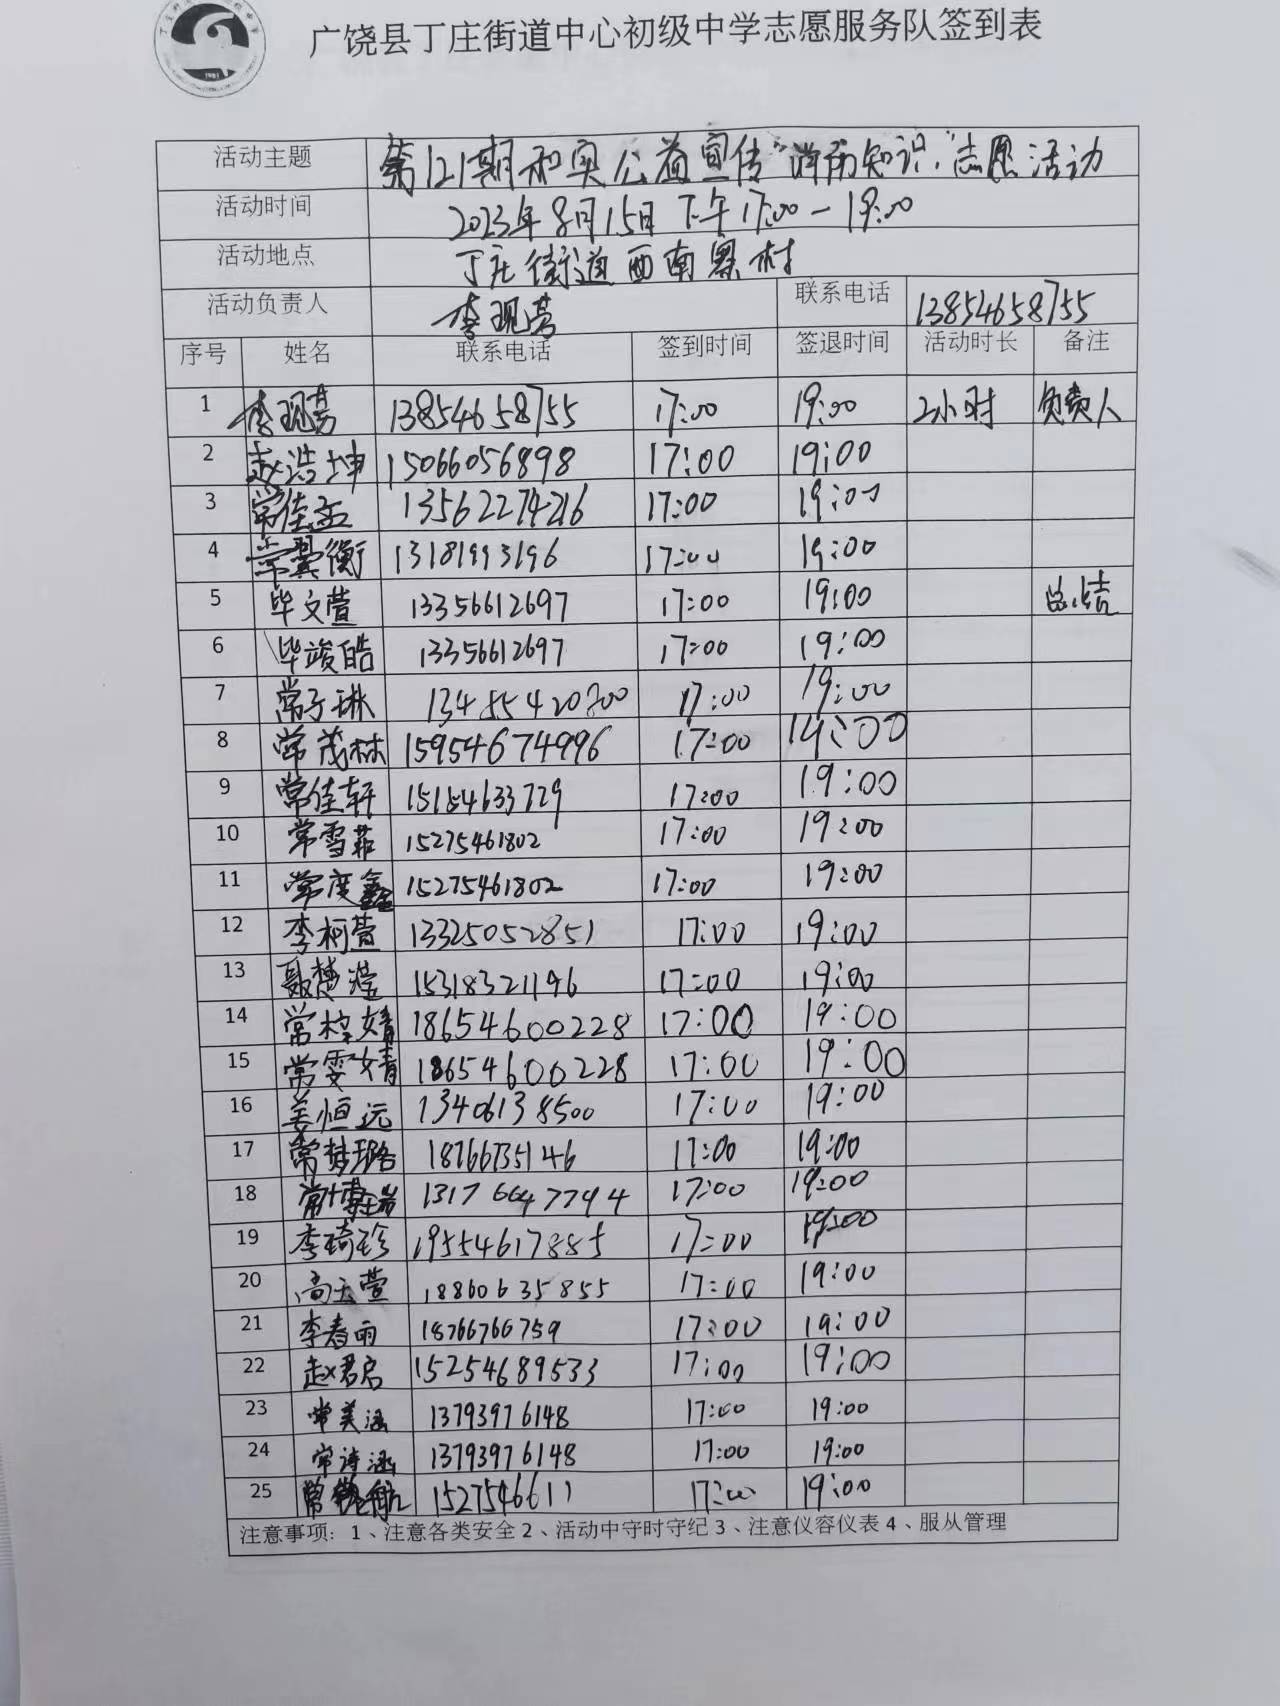 广饶县丁庄街道中心初级中学志愿服务队签到表
1981
活动主题 第121期和奥公益宣传“消防知识”志愿活动
活动时间 2023年8月15日下午17:00-19:00
活动地点 丁庄街道西南寨村
活动负责人 李现芳 联系电话 13854658755
序号 姓名 联系电话 签到时间 签退时间 活动时长 备注
1 李现芳 13854658755 17:00 19:00 2小时 负责人
2 赵浩坤 15066056898 17:00 19:00
3 常佳孟 13562274216 17:00 19:00
4 常翼衡 13181993196 17:00 19:00
5 毕文萱 13356612697 17:00 19:00 总结
6 毕竣皓 13356612697 17:00 19:00
7 常子琳 13455420700 17:00 19:00
8 常茂林 15954674996 17:00 19:00
9 常佳轩 15154633729 17:00 19:00
10 常雪菲 15275461802 17:00 19:00
11 常度鑫 15275461802 17:00 19:00
12 李柯萱 13325052851 17:00 19:00
13 聂楚滢 15318321196 17:00 19:00
14 常梓婧 18654600228 17:00 19:00
15 常雯婧 18654600228 17:00 19:00
16 姜恒远 13406138500 17:00 19:00
17 常梦璐 18766735146 17:00 19:00
18 常博岩 13176647794 17:00 19:00
19 李琦珍 19554617885 17:00 19:00
20 高玉萱 18860635855 17:00 19:00
21 李春雨 18766766759 17:00 19:00
22 赵君启 15254689533 17:00 19:00
23 常美涵 13793976148 17:00 19:00
24 常诗涵 13793976148 17:00 19:00
25 常航 1527546611 17:00 19:00
注意事项: 1、注意各类安全 2、活动中守时守纪 3、注意仪容仪表 4、服从管理